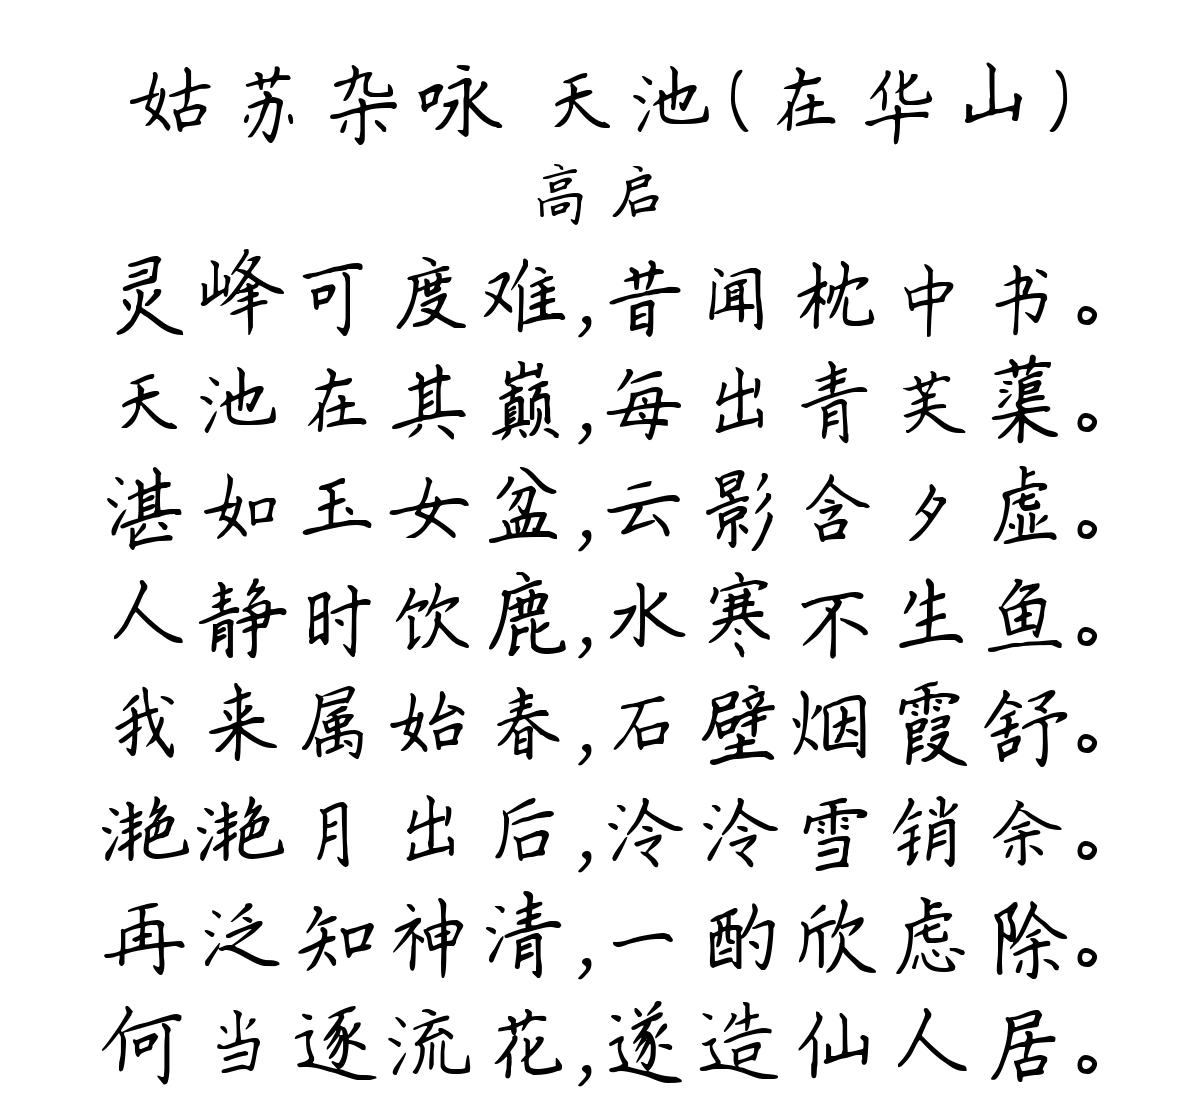 姑苏杂咏 天池(在华山)
高启
灵峰可度难,昔闻枕中书。
天池在其巅,每出青芙蕖。
湛如玉女盆,云影含夕虚。
人静时饮鹿,水寒不生鱼。
我来属始春,石壁烟霞舒。
滟滟月出后,泠泠雪销余。
再泛知神清,一酌欣虑除。
何当逐流花,遂造仙人居。